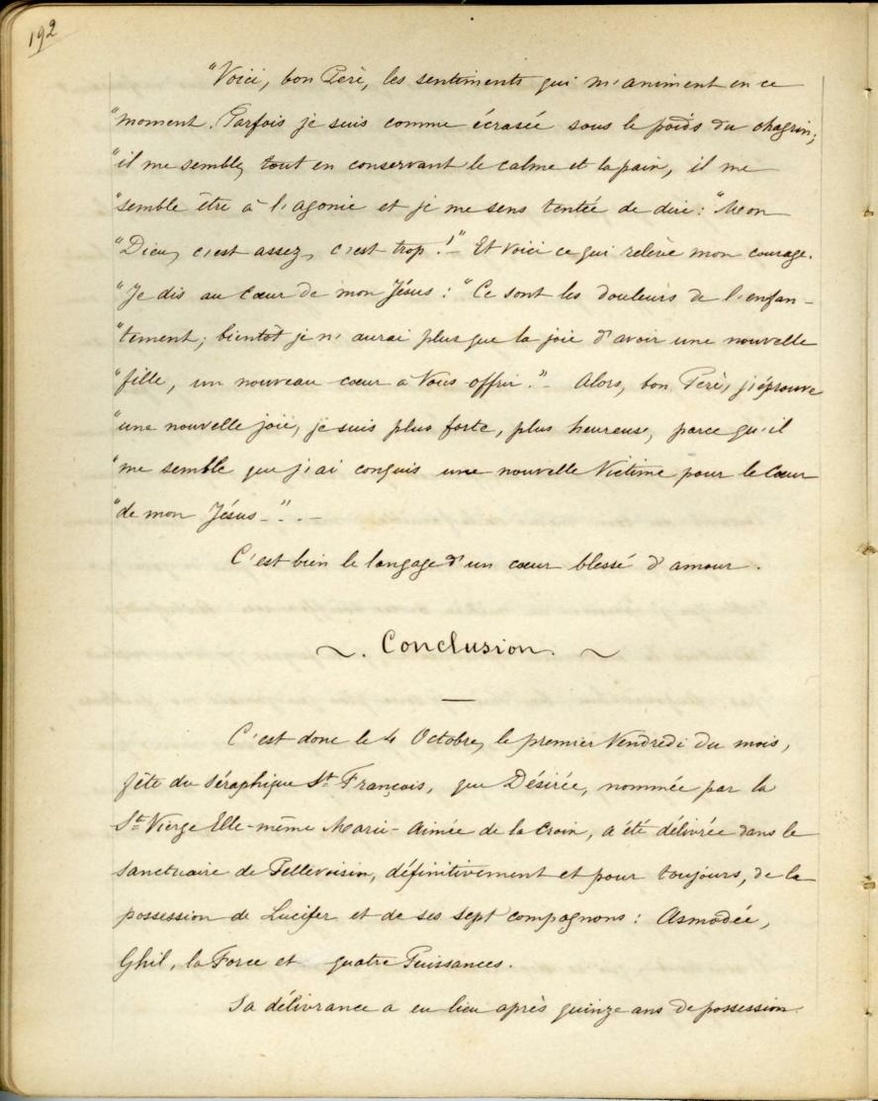 192
"Voici, bon Père, les sentiments qui m'animent en ce
"moment. Parfois je suis comme écrasée sous le poids du chagrin;
"il me semble, tout en conservant le calme et la paix, il me
"semble être à l'agonie et je me sens tentée de dire: "Mon
"Dieu, c'est assez, c'est trop!"_ Et voici ce qui relève mon courage.
"Je dis au Cœur de mon Jésus: "Ce sont les douleurs de l'enfan-
"tement; bientôt je n'aurai plus que la joie d'avoir une nouvelle
"fille, un nouveau cœur à Vous offrir."_ Alors, bon Père, j'éprouve
"une nouvelle joie, je suis plus forte, plus heureuse, parce qu'il
"me semble que j'ai conquis une nouvelle Victime pour le Cœur
"de mon Jésus_"._
C'est bien le langage d'un cœur blessé d'amour.
~. Conclusion. ~
C'est donc le 4 Octobre, le premier Vendredi du mois,
fête du séraphique St François, que Désirée, nommée par la
Ste Vierge Elle-même Marie-Aimée de la Croix, a été délivrée dans le
sanctuaire de Pellevoisin, définitivement et pour toujours, de la
possession de Lucifer et de ses sept compagnons: Asmodée,
Ghil, la Force et quatre Puissances.
Sa délivrance a eu lieu après quinze ans de possession